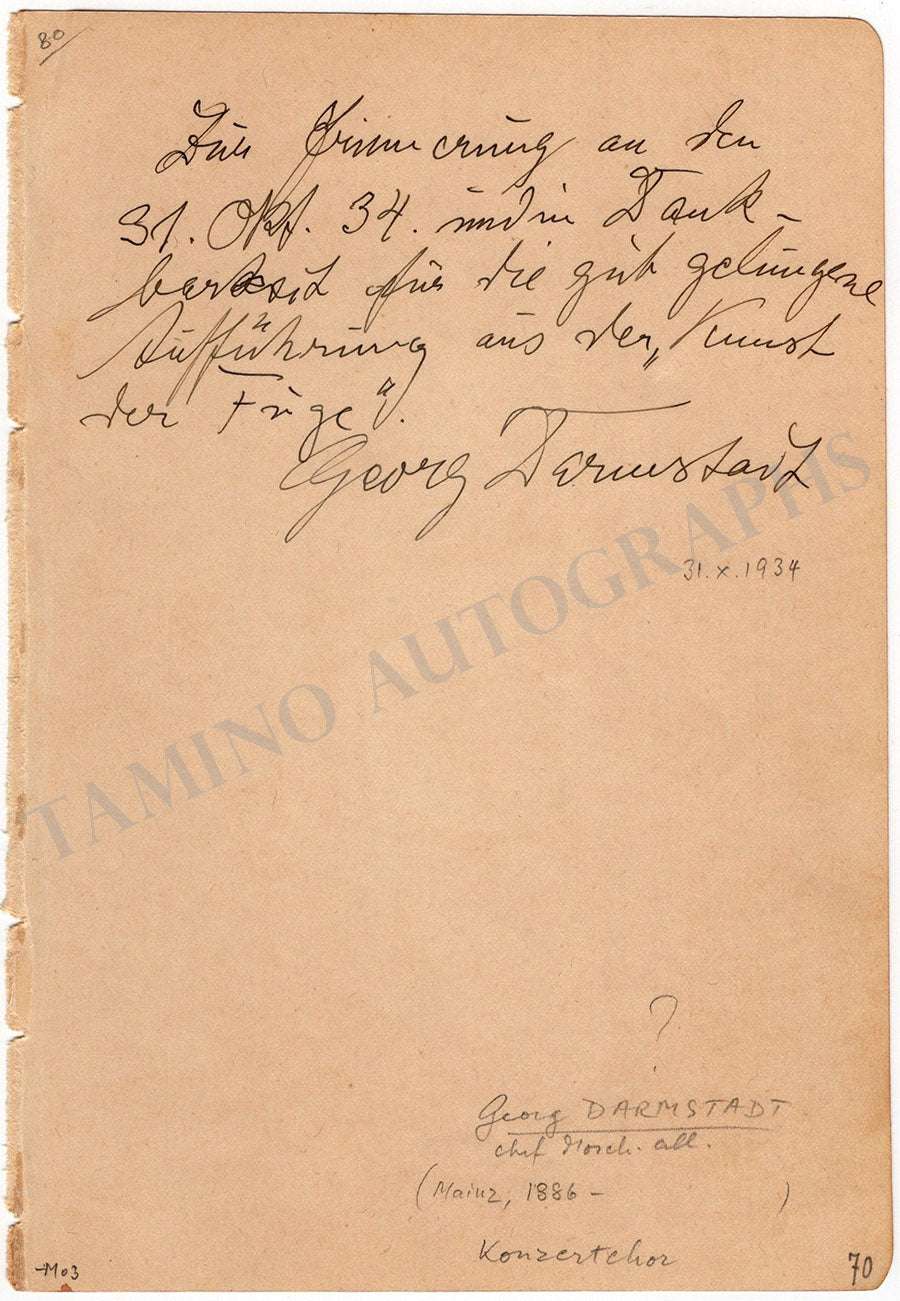 80
Zur Erinnerung an den
31. Okt. 34. und in Dank-
barkeit für die gut gelungene
Aufführung aus der „Kunst
der Fuge“.
Georg Darmstadt
31.X.1934
TAMINO AUTOGRAPHS
?
Georg DARMSTADT
chef d'orch. all.
(Mainz, 1886 - )
Konzertchor
-M03
70